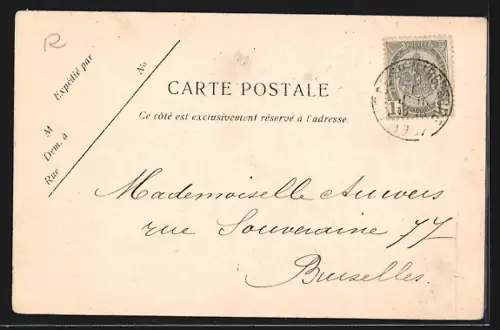 R
Expédié par
No
M
Dem. à
Rue
CARTE POSTALE
Ce côté est exclusivement réservé à l'adresse.
1
Mademoiselle Anvers
rue Souveraine 77
Bruxelles.